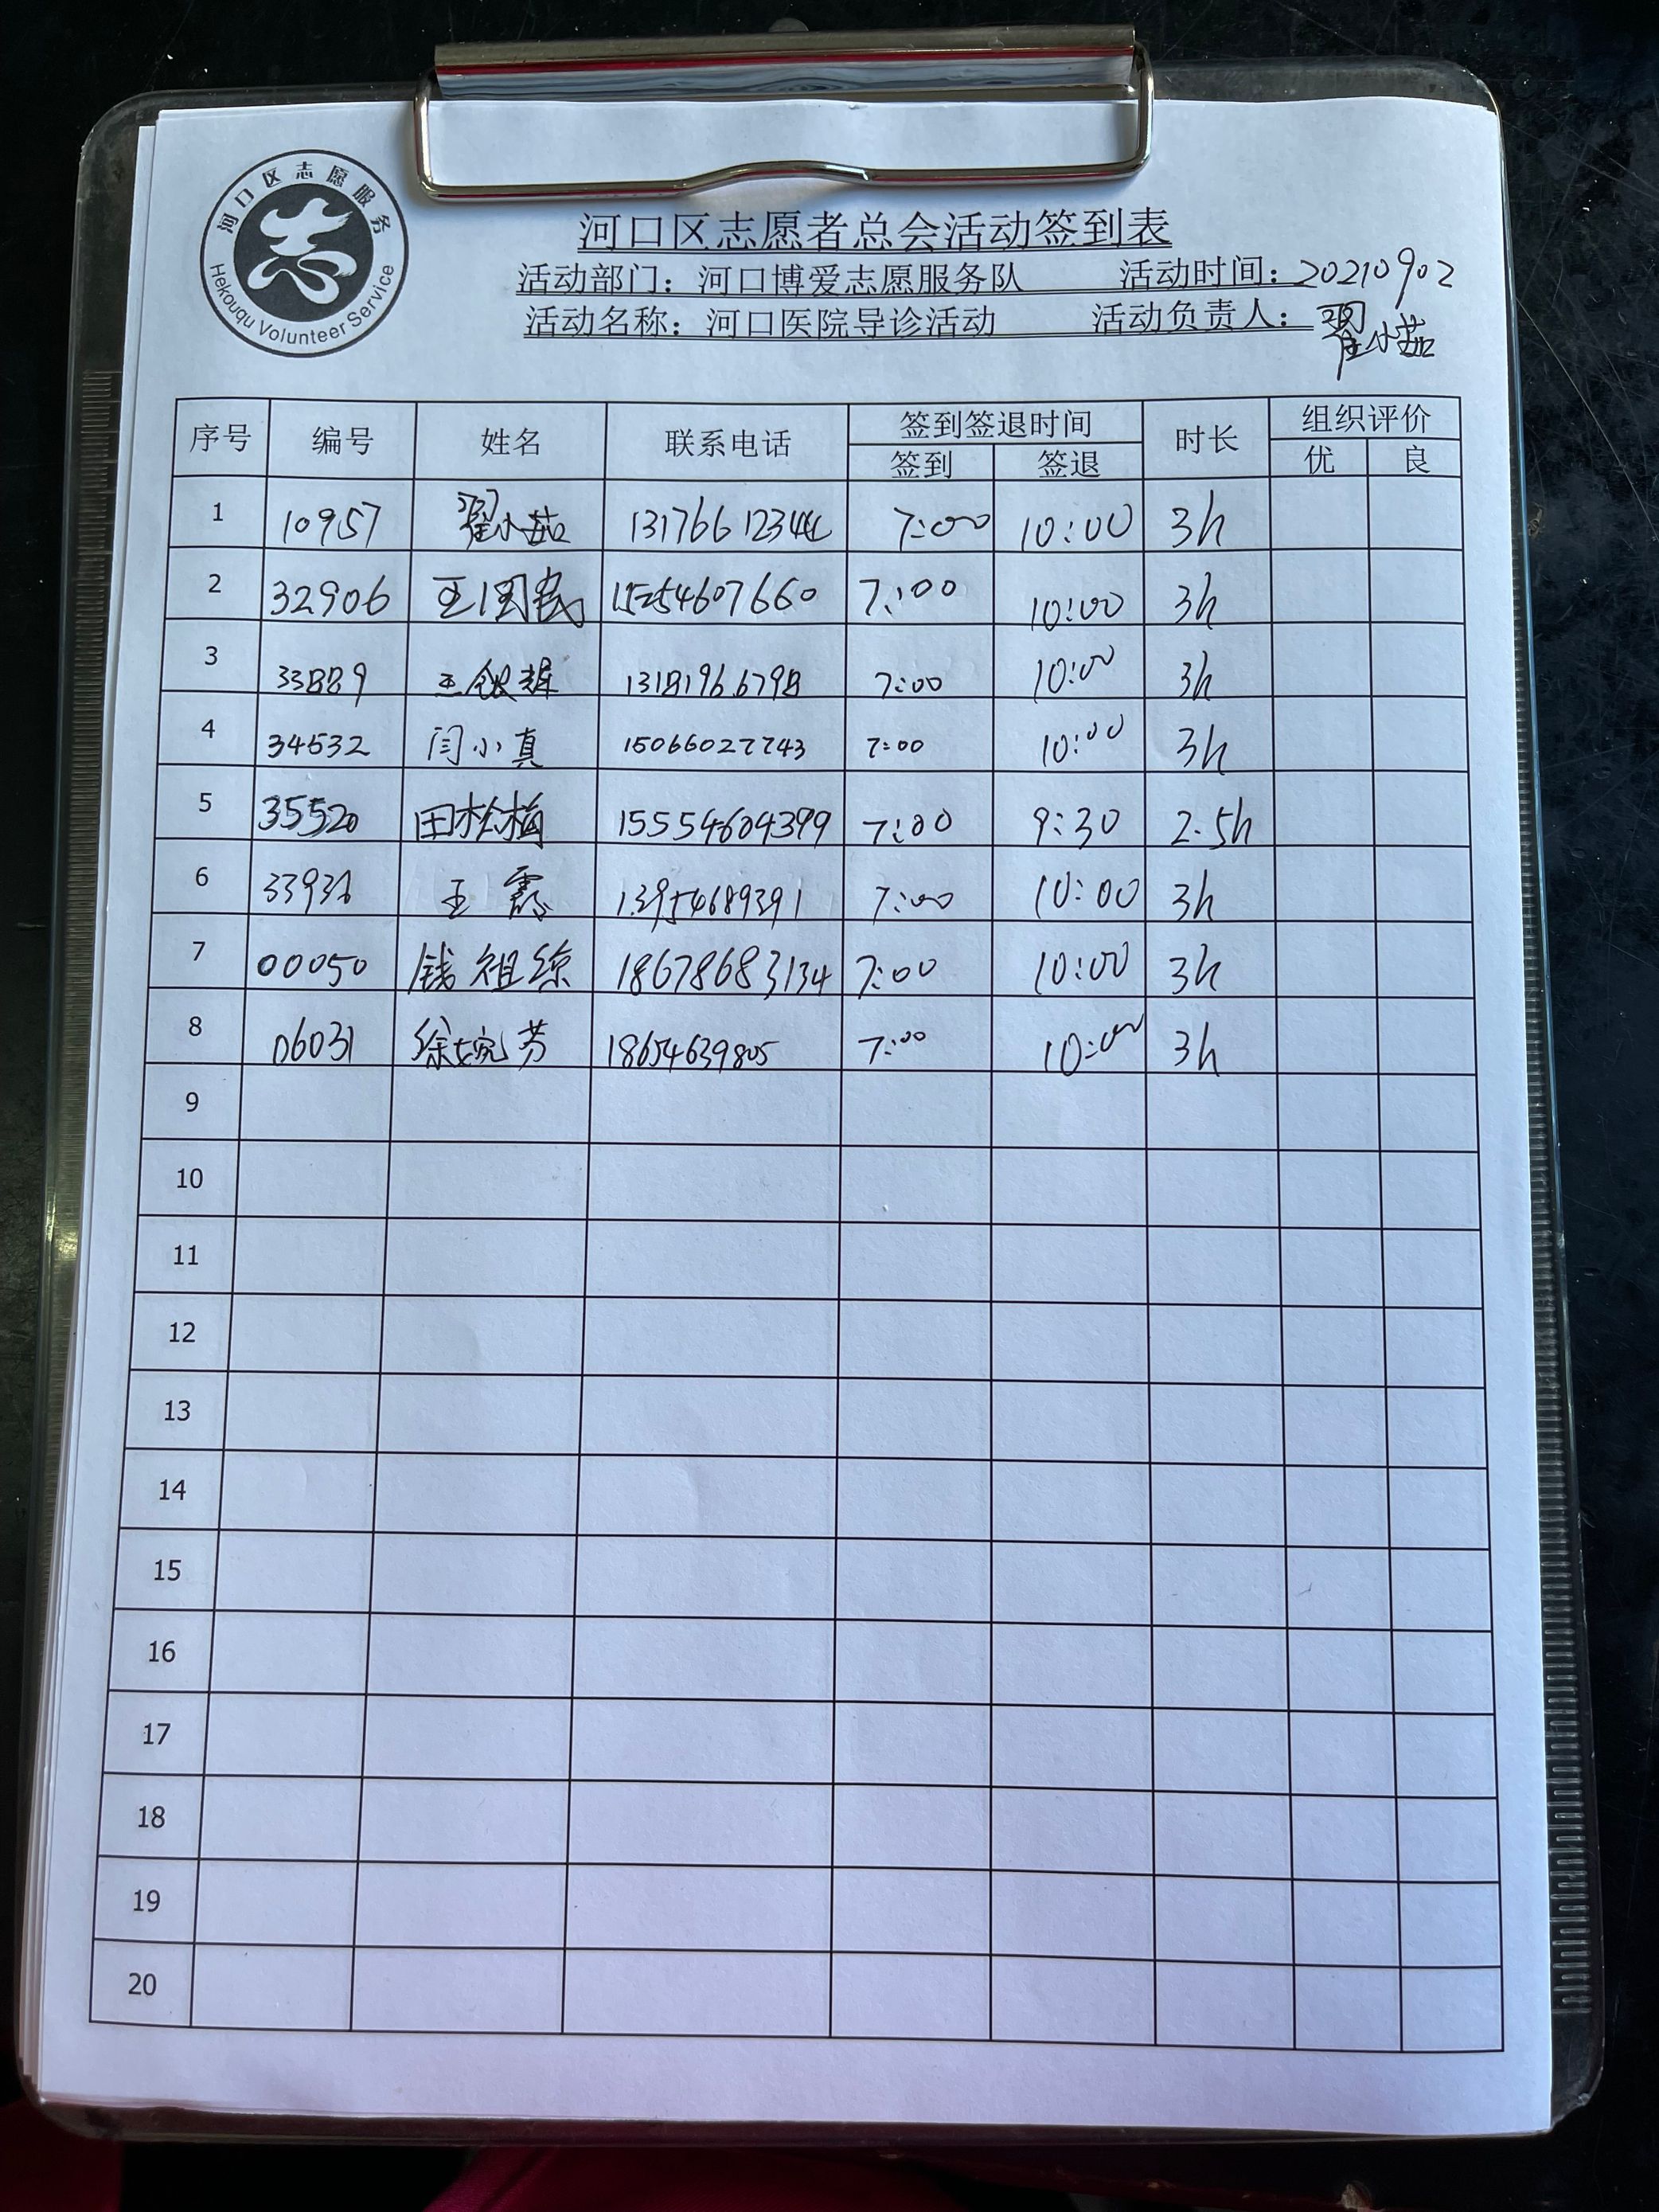 河口区志愿服务
Hekouqu Volunteer Service
河口区志愿者总会活动签到表
活动部门：河口博爱志愿服务队 活动时间：20210902
活动名称：河口医院导诊活动 活动负责人：翟小茹
序号 编号 姓名 联系电话 签到签退时间 时长 组织评价
签到 签退 优 良
1 10957 翟小茹 13176612344 7:00 10:00 3h
2 32906 王国民 15254607660 7:00 10:00 3h
3 33889 王 13181966798 7:00 10:00 3h
4 34532 闫小真 15066027743 7:00 10:00 3h
5 35520 田桂梅 15554604399 7:00 9:30 2.5h
6 王霞 13954689391 7:00 10:00 3h
7 00050 钱祖琼 18678683134 7:00 10:00 3h
8 06031 徐婉芳 18654639805 7:00 10:00 3h
9
10
11
12
13
14
15
16
17
18
19
20